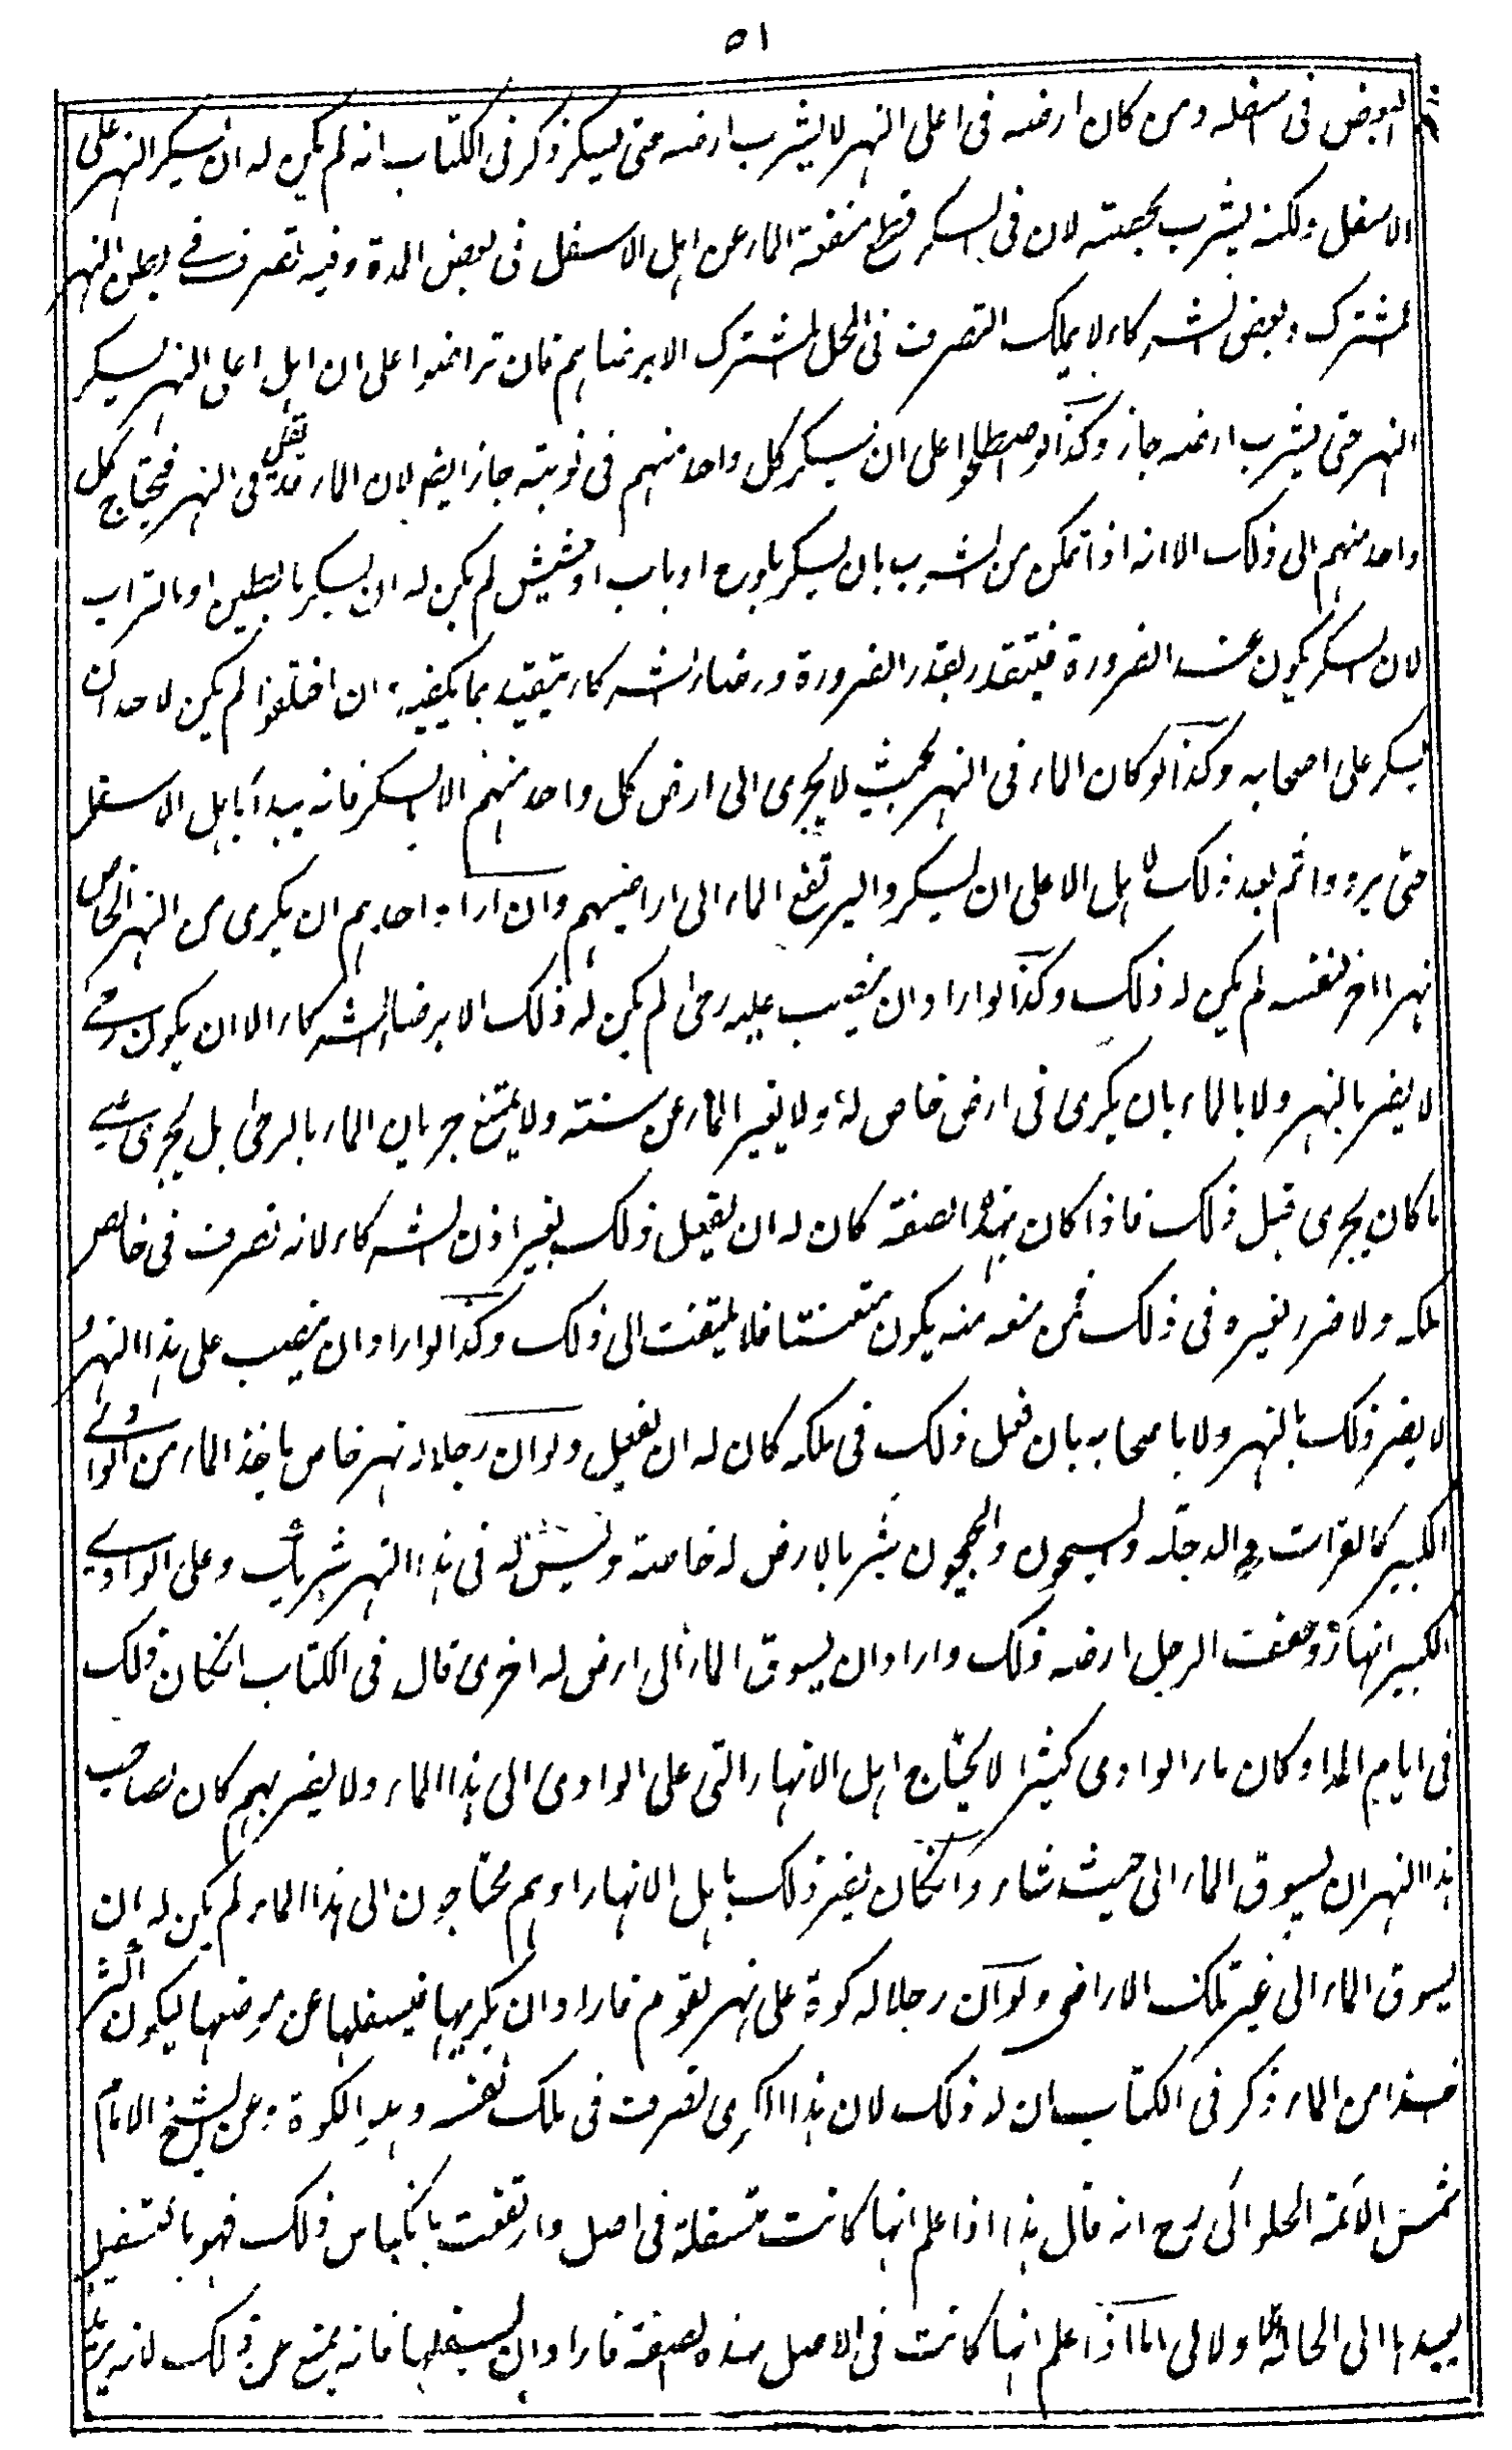 ٥١
البعض فى اسفله ومن كان ارضه فى اعلى النهر لا يشرب ارضه حتى يسكر ذكر فى الكتاب انه لم يكن له ان يسكر النهر على
الاسفل ولكنه يشرب بحصته لان فى السكر قطع منفعة الماء عن اهل الاسفل فى بعض المدة وفيه تصرف فى بطن النهر
المشترك وبعض الشركاء لا يملك التصرف فى المحل المشترك الا برضاهم فان تراضوا على ان اهل اعلى النهر يسكر
النهر حتى يشرب ارضه جاز وكذا لو اصطلحوا على ان يسكر كل واحد منهم فى نوبته جاز ايضا لان الماء قد يقل فى النهر فيحتاج كل
واحد منهم الى ذلك الا انه اذا تمكن من الشرب بان يسكر بلوح او باب او حشيش لم يكن له ان يسكر بالطين او بالتراب
لان السكر يكون عند الضرورة فيتقدر بقدر الضرورة ورضاء الشركاء يتقيد بما يكفيه ان اختلفوا لم يكن لاحد ان
يسكر على اصحابه وكذا لو كان الماء فى النهر بحيث لا يجرى الى ارض كل واحد منهم الا بالسكر فانه يبدأ باهل الاسفل
حتى يرووا ثم بعد ذلك لاهل الاعلى ان يسكروا ليرتفع الماء الى اراضيهم وان اراد احدهم ان يكرى من النهر الخاص
نهرا اخر لنفسه لم يكن له ذلك وكذا لو اراد ان ينصب عليه رحى لم يكن له ذلك الا برضا الشركاء الا ان يكون رحى
لا يضر بالنهر ولا بالماء بان يكرى فى ارض خاص له ولا يغير الماء عن سننه ولا يمتنع جريان الماء بالرحى بل يجرى على
ما كان يجرى قبل ذلك فاذا كان بهذه الصفة كان له ان يفعل ذلك بغير اذن الشركاء لانه تصرف فى خالص
ملكه ولا ضرر لغيره فى ذلك فمن منعه منه يكون متعنتا فلا يلتفت الى ذلك وكذا لو اراد ان ينصب على هذا النهر و
لا يضر ذلك بالنهر ولا باصحابه بان فعل ذلك فى ملكه كان له ان يفعل ولو ان رجلا له نهر خاص ياخذ الماء من الوادى
الكبير كالفرات والدجلة والسيحون والجيحون يشربه الارض له خاصة وليس له فى هذا النهر شريك وعلى الوادى
الكبير انهار وصعفت الرجل ارضه ذلك واراد ان يسوق الماء الى ارض له اخرى قال فى الكتاب ان كان ذلك
فى ايام المد او كان ماء الوادى كثيرا لا يحتاج اهل الانهار التى على الوادى الى هذا الماء ولا يضر بهم كان لصاحب
هذا النهر ان يسوق الماء الى حيث شاء وان كان يضر ذلك باهل الانهار وهم محتاجون الى هذا الماء لم يكن له ان
يسوق الماء الى غير تلك الاراضى ولو ان رجلا له كوة على نهر لقوم فاراد ان يكريها فيسفلها عن موضعها ليكون اكثر
اخذا من الماء ذكر فى الكتاب ان له ذلك لان هذا الكرى تصرف فى ملك نفسه وهو الكوة وعن الشيخ الامام
شمس الائمة الحلوائى رح انه قال هذا اذا علم انها كانت متسفلة فى اصل وارتفعت بانكباس ذلك فهو بالتسفيل
يعيدها الى الحالة الاولى اما اذا علم انها كانت فى الاصل بهذه الصفة فاراد ان يسفلها فانه يمنع عن ذلك لانه يريد